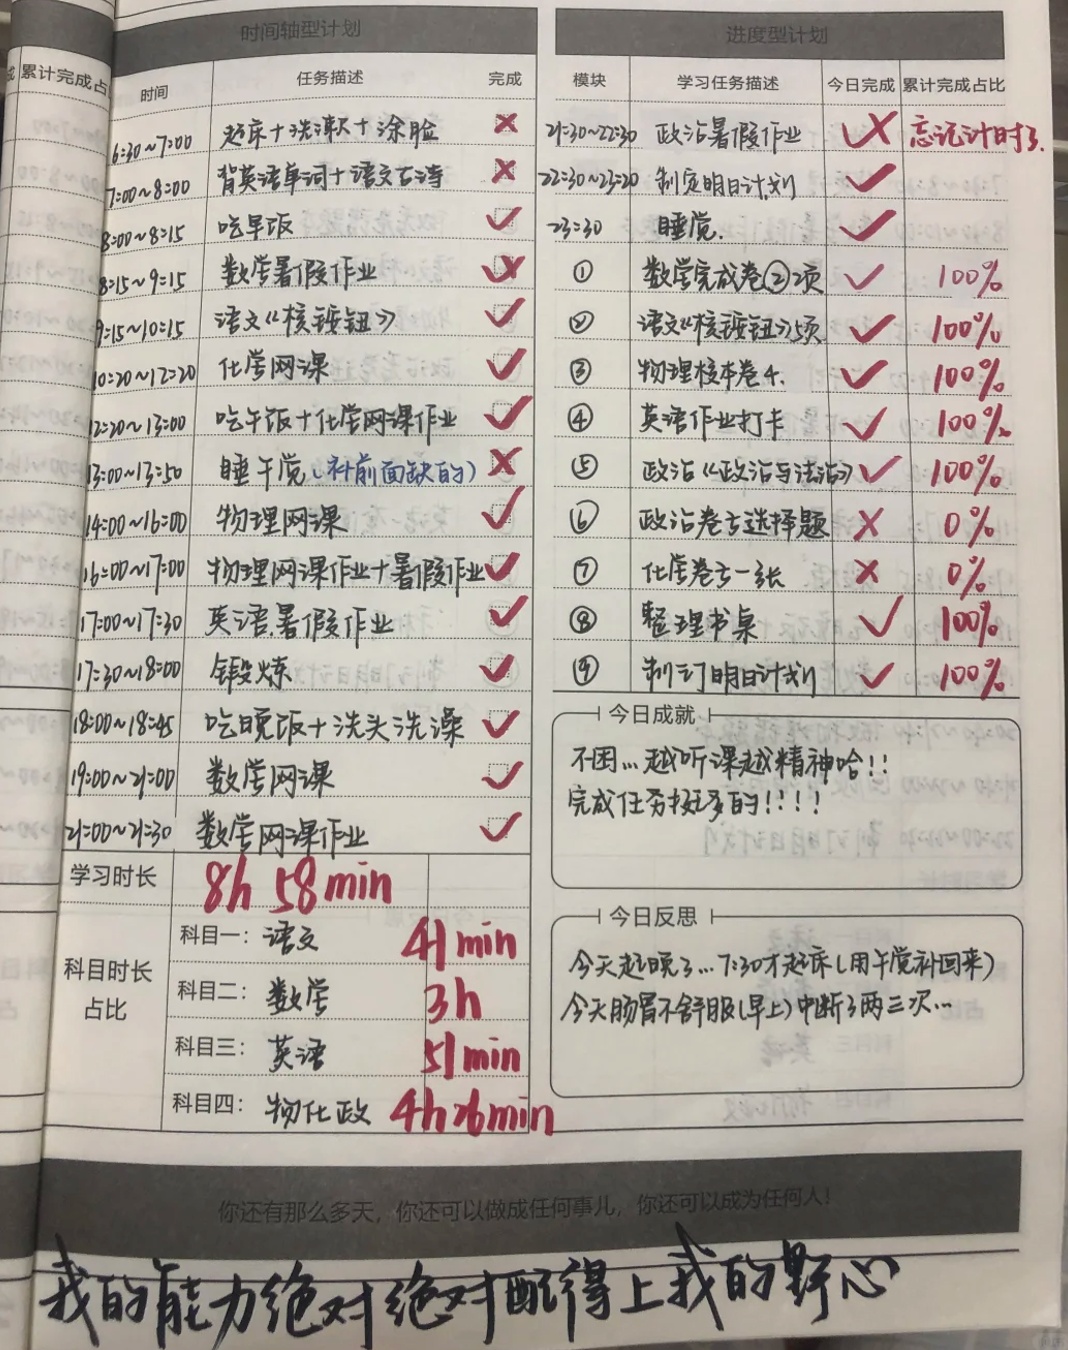 时间轴型计划
累计完成占
时间 任务描述 完成
6:30~7:00 起床+洗漱+涂脸
7:00~8:00 背英语单词+语文古诗
8:00~8:15 吃早饭
8:15~9:15 数学暑假作业
9:15~10:15 语文《核按钮》
10:20~12:20 化学网课
12:20~13:00 吃午饭+化学网课作业
13:00~13:50 睡午觉(补前面缺的)
14:00~16:00 物理网课
16:00~17:00 物理网课作业+暑假作业
17:00~17:30 英语暑假作业
17:30~18:00 锻炼
18:00~18:45 吃晚饭+洗头洗澡
19:00~21:00 数学网课
21:00~21:30 数学网课作业
学习时长 8h 58min
科目时长占比
科目一:语文 41min
科目二:数学 3h
科目三:英语 51min
科目四:物化政 4h26min
进度型计划
模块 学习任务描述 今日完成 累计完成占比
21:30~22:30 政治暑假作业 忘记计时了.
22:30~23:20 制定明日计划
23:30 睡觉.
① 数学完成卷②2项 100%
② 语文《核按钮》5页 100%
③ 物理校本卷4. 100%
④ 英语作业打卡 100%
⑤ 政治《政治与法治》 100%
⑥ 政治卷七选择题 0%
⑦ 化学卷七一张 0%
⑧ 整理书桌 100%
⑨ 制订明日计划 100%
今日成就
不困...越听课越精神哈!!
完成任务挺多的!!!!
今日反思
今天起晚了...7:30才起床(用午觉补回来)
今天肠胃不舒服(早上)中断了两三次...
你还有那么多天,你还可以做成任何事儿,你还可以成为任何人!
我的能力绝对绝对配得上我的野心